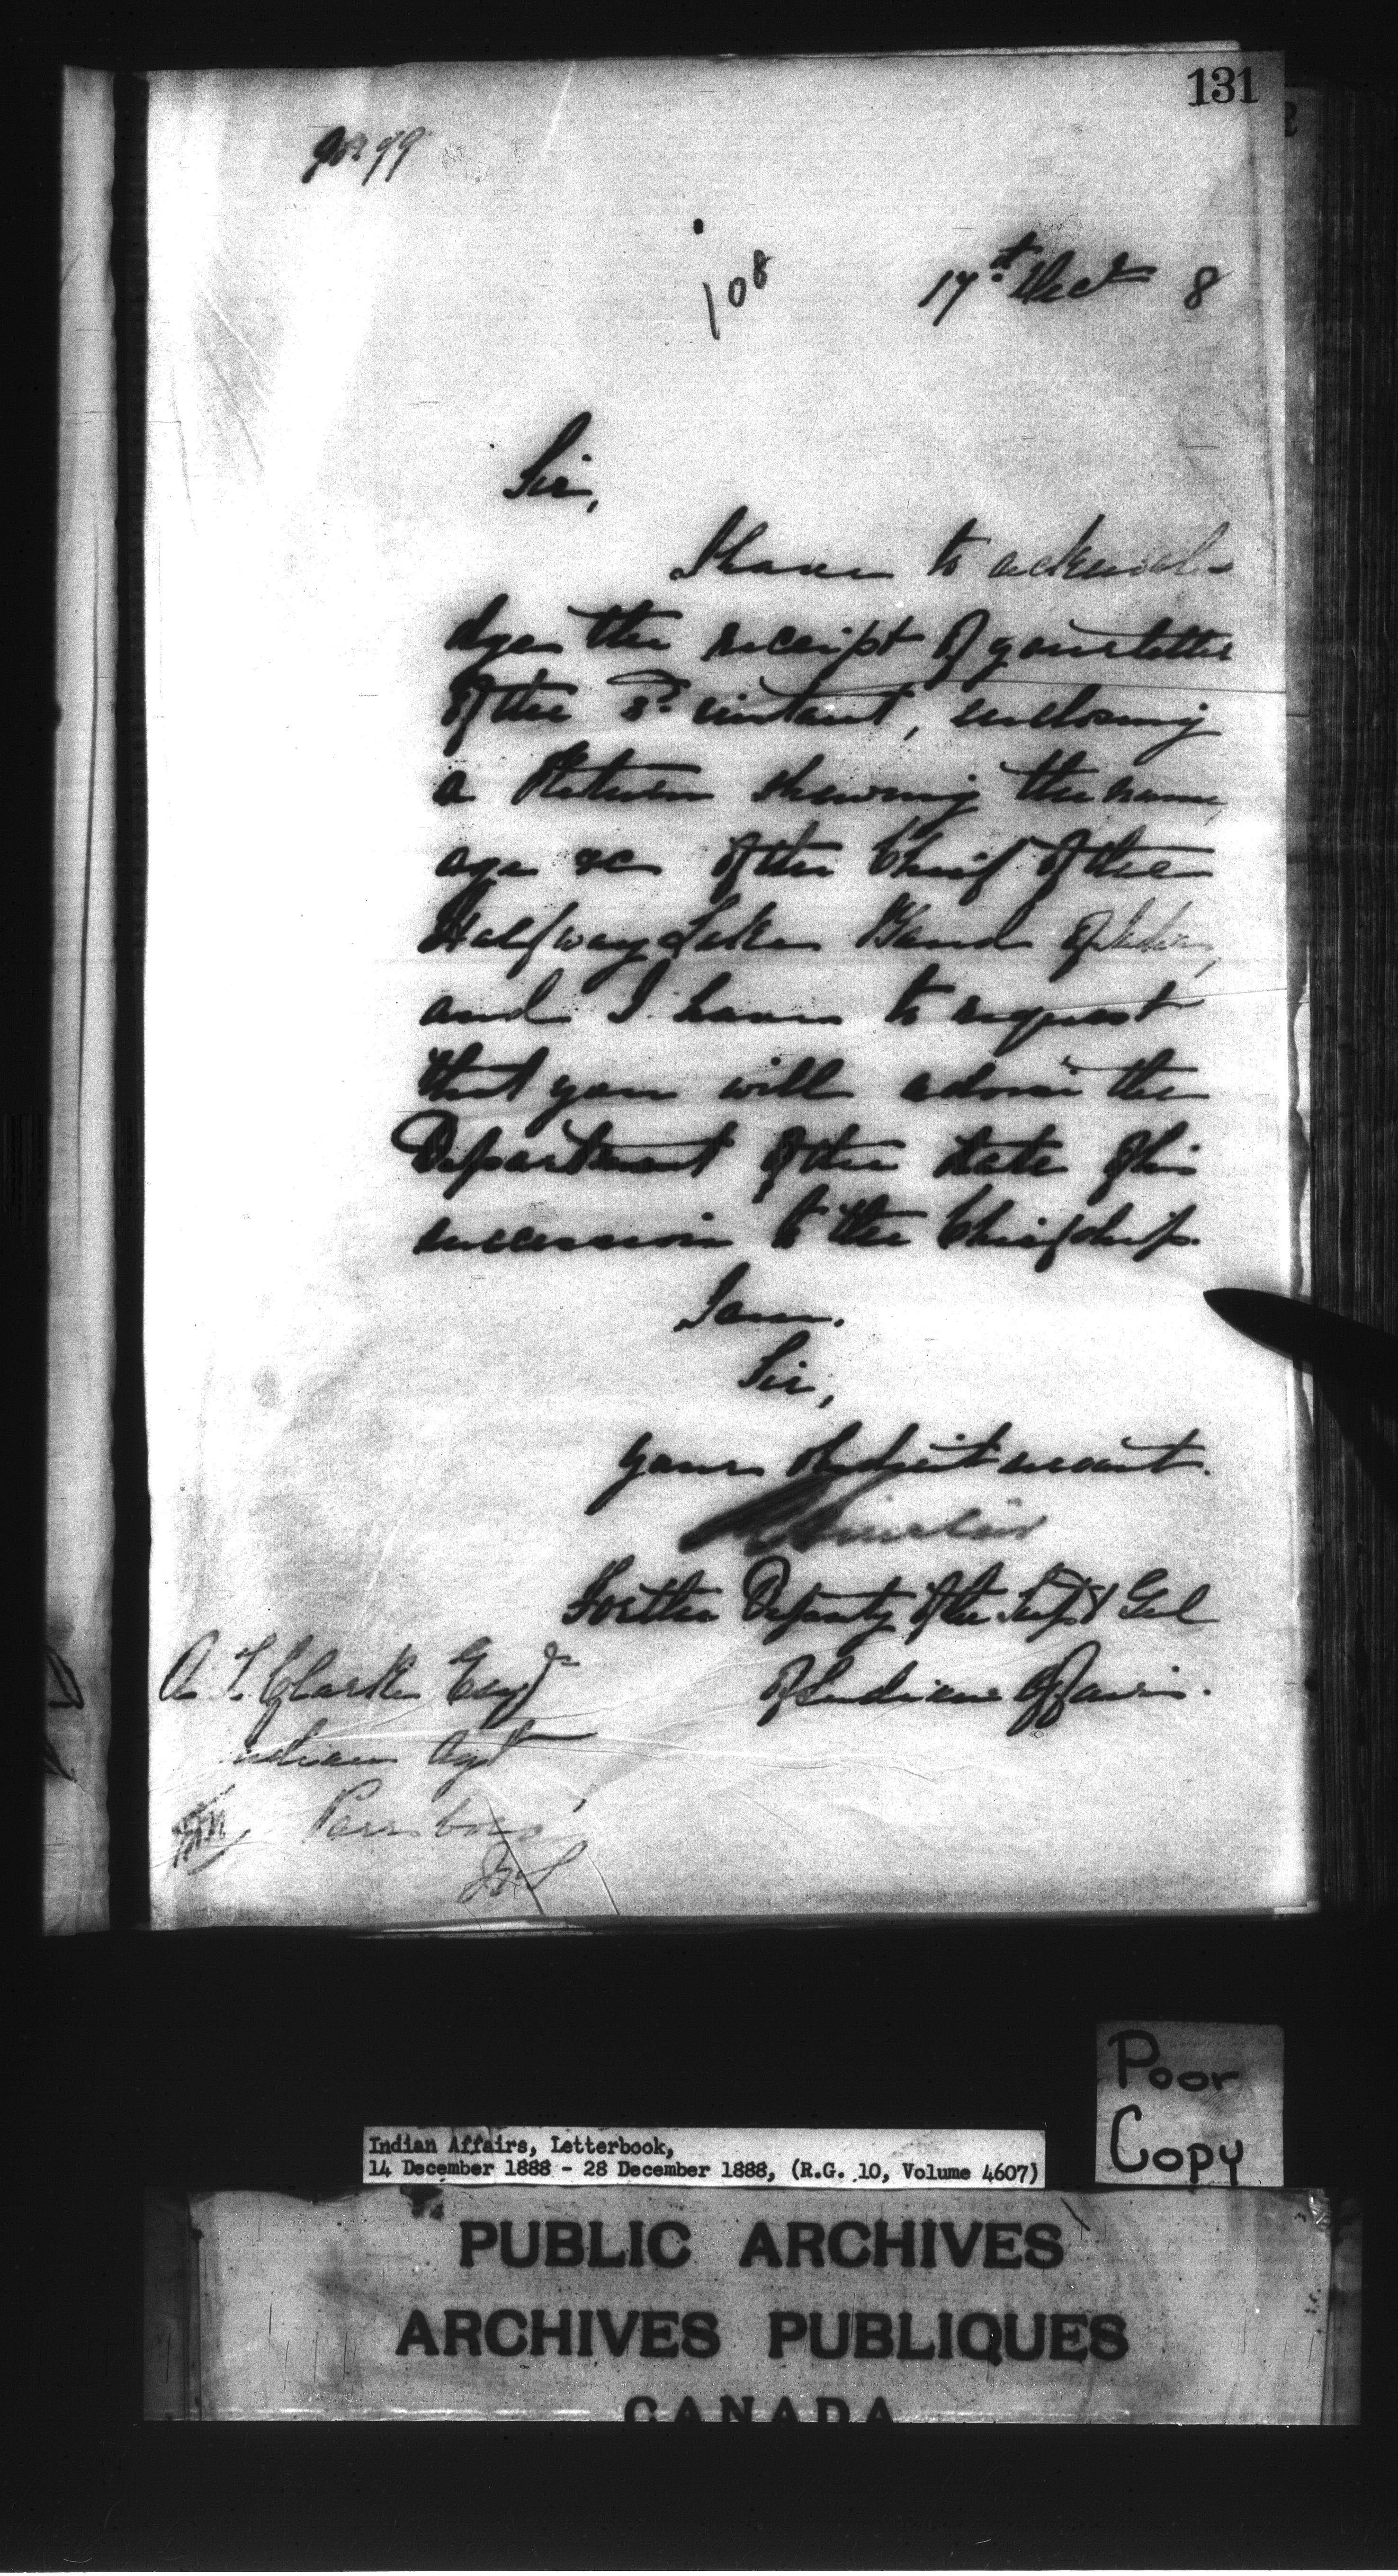 131
108
17th Dec 8
Sir,
I have to acknowle
dge the receipt of your letter
of the instant, enclosing
a Return shewing the name,
age &c of the Chief of the
Halfway Lake Band of Indians,
and I have to request
that you will advise the
Department of the date of his
succession to the Chiefship.
I am.
Sir,
Your obedient servant.
Sinclair
For the Deputy of the Supt Genl
of Indian Affairs.
A. T. Clarke Esqr
Indian Agt
Parrsboro
N.S
Poor
Copy
Indian Affairs, Letterbook,
14 December 1888 - 28 December 1888, (R.G. 10, Volume 4607)
PUBLIC ARCHIVES
ARCHIVES PUBLIQUES
CANADA